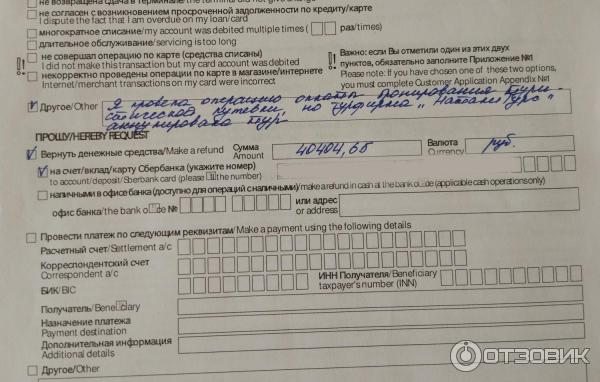 не возвращена сдача в терминале/the terminal did not give change
не согласен с возникновением просроченной задолженности по кредиту/карте
I dispute the fact that I am overdue on my loan/card
многократное списание/my account was debited multiple times ( раз/times)
длительное обслуживание/servicing is too long
не совершал операцию по карте (средства списаны)
I did not make this transaction but my card account was debited
некорректно проведены операции по карте в магазине/интернете
Internet/merchant transactions on my card were incorrect
Важно: если Вы отметили один из этих двух
пунктов, обязательно заполните Приложение №1
Please note: If you have chosen one of these two options,
you must complete Customer Application Appendix №1
Другое/Other Я провела операцию оплаты бронирования тури-
стической путевки, но турфирма "Натали Турс"
аннулировала тур
ПРОШУ/HEREBY REQUEST
Вернуть денежные средства/Make a refund Сумма 40404,66 Валюта руб.
Amount Currency
на счет/вклад/карту Сбербанка (укажите номер)
to account/deposit/Sberbank card (please the number)
наличными в офисе банка (доступно для операций с наличными)/make a refund in cash at the bank (applicable cash operations only)
офис банка/the bank № или адрес
or address
Провести платеж по следующим реквизитам/Make a payment using the following details
Расчетный счет/Settlement a/c
Корреспондентский счет
Correspondent a/c
БИК/BIC
ИНН Получателя/Beneficiary
taxpayer's number (INN)
Получатель/Beneficiary
Назначение платежа
Payment destination
Дополнительная информация
Additional details
Другое/Other
ОТЗОВИК